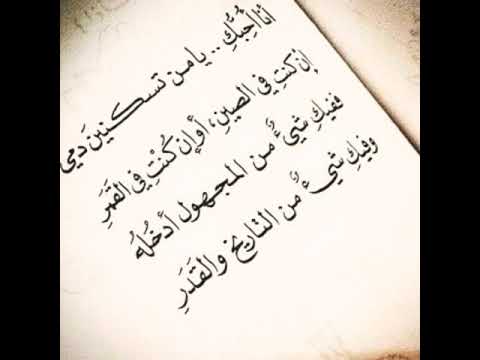 أنا أُحِبُّكِ .. يا من تسكنينَ دَمي
إن كنتِ في الصينِ، أو إن كُنْتِ في القَمَرِ
ففيكِ شيءٌ من المجهول أدخُلُه
وفيكِ شيءٌ من التاريخ والقَدَرِ